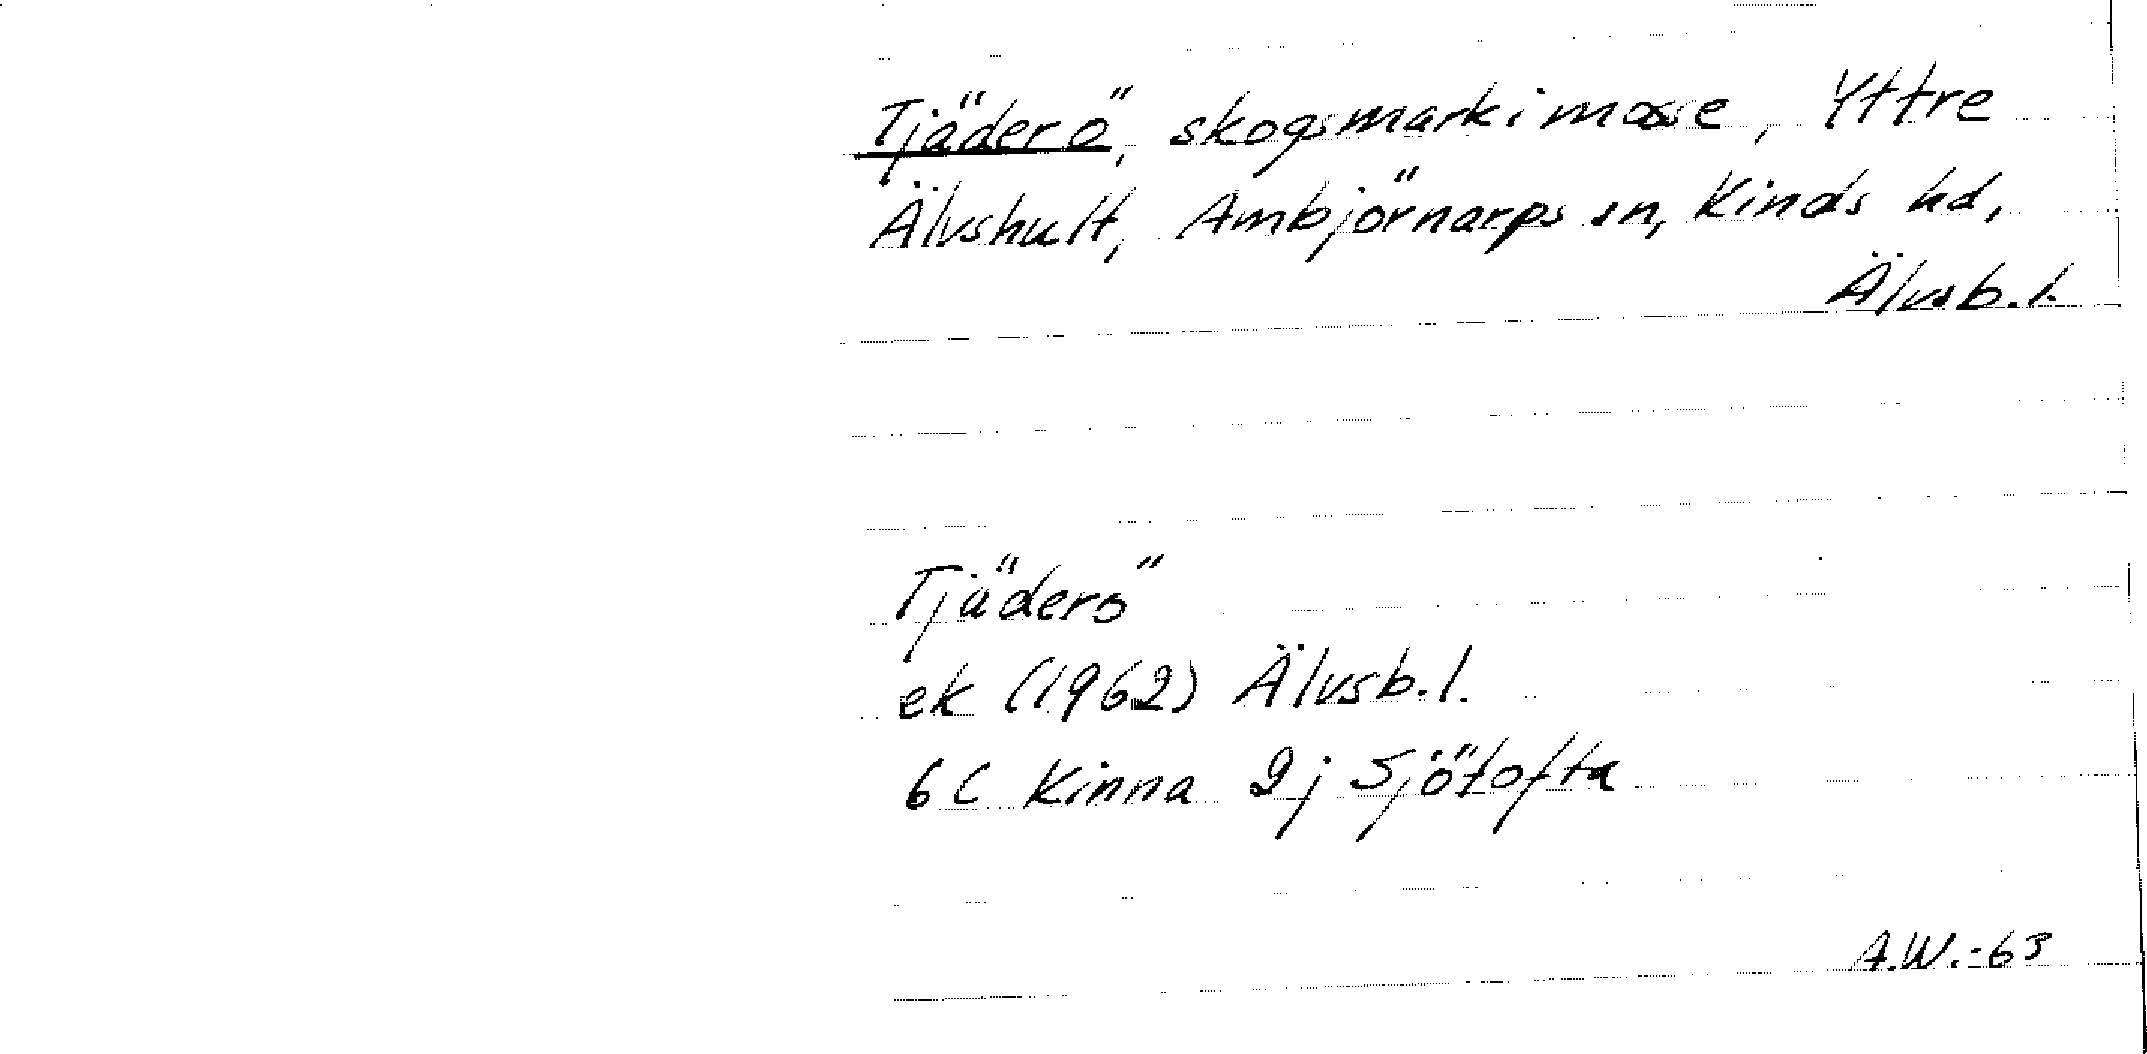 Tjäderö, skogsmark i mosse, Yttre
Älvshult, Ambjörnarps sn, Kinds hd,
Älvsb. l.
Tjäderö
ek (1962) Älvsb. l.
6C Kinna 2j Sjötofta
A.W.-63